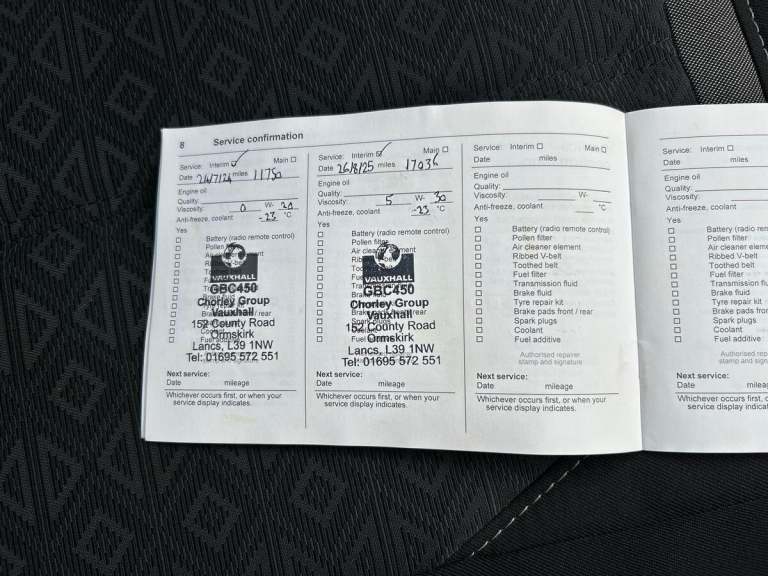 8 Service confirmation
Service: Interim ☑ Main ☐
Date 24/7/24 miles 11750
Engine oil
Quality:
Viscosity: 0 W- 20
Anti-freeze, coolant -23 °C
Yes
☐ Battery (radio remote control)
☐ Pollen
☐
☐
☐
☐
☐
☐
☐
☐ / rear
☐
☐
☐ Fuel additive
VAUXHALL
GBC450
Chorley Group
Vauxhall
152 County Road
Ormskirk
Lancs, L39 1NW
Tel: 01695 572 551
Next service:
Date mileage
Whichever occurs first, or when your
service display indicates.
Service: Interim ☑ Main ☐
Date 26/8/25 miles 17036
Engine oil
Quality:
Viscosity: 5 W- 30
Anti-freeze, coolant -23 °C
Yes
☐ Battery (radio remote control)
☐ Pollen filter
☐ Air cleaner element
☐
☐
☐ Fuel
☐
☐ Brake fluid
☐
☐ Brake pads front / rear
☐ Spark plugs
☐ Coolant
☐ Fuel additive
VAUXHALL
GBC450
Chorley Group
Vauxhall
152 County Road
Ormskirk
Lancs, L39 1NW
Tel: 01695 572 551
Next service:
Date mileage
Whichever occurs first, or when your
service display indicates.
Service: Interim ☐ Main ☐
Date miles
Engine oil
Quality:
Viscosity: W-
Anti-freeze, coolant °C
Yes
☐ Battery (radio remote control)
☐ Pollen filter
☐ Air cleaner element
☐ Ribbed V-belt
☐ Toothed belt
☐ Fuel filter
☐ Transmission fluid
☐ Brake fluid
☐ Tyre repair kit
☐ Brake pads front / rear
☐ Spark plugs
☐ Coolant
☐ Fuel additive
Authorised repairer
stamp and signature
Next service:
Date mileage
Whichever occurs first, or when your
service display indicates.
Service: Interim ☐
Date miles
Engine oil
Quality:
Viscosity:
Anti-freeze, coolant
Yes
☐ Battery (radio rem
☐ Pollen filter
☐ Air cleaner eleme
☐ Ribbed V-belt
☐ Toothed belt
☐ Fuel filter
☐ Transmission flu
☐ Brake fluid
☐ Tyre repair kit
☐ Brake pads fron
☐ Spark plugs
☐ Coolant
☐ Fuel additive
Authorised rep
stamp and sign
Next service:
Date mileag
Whichever occurs first, or
service display indicat